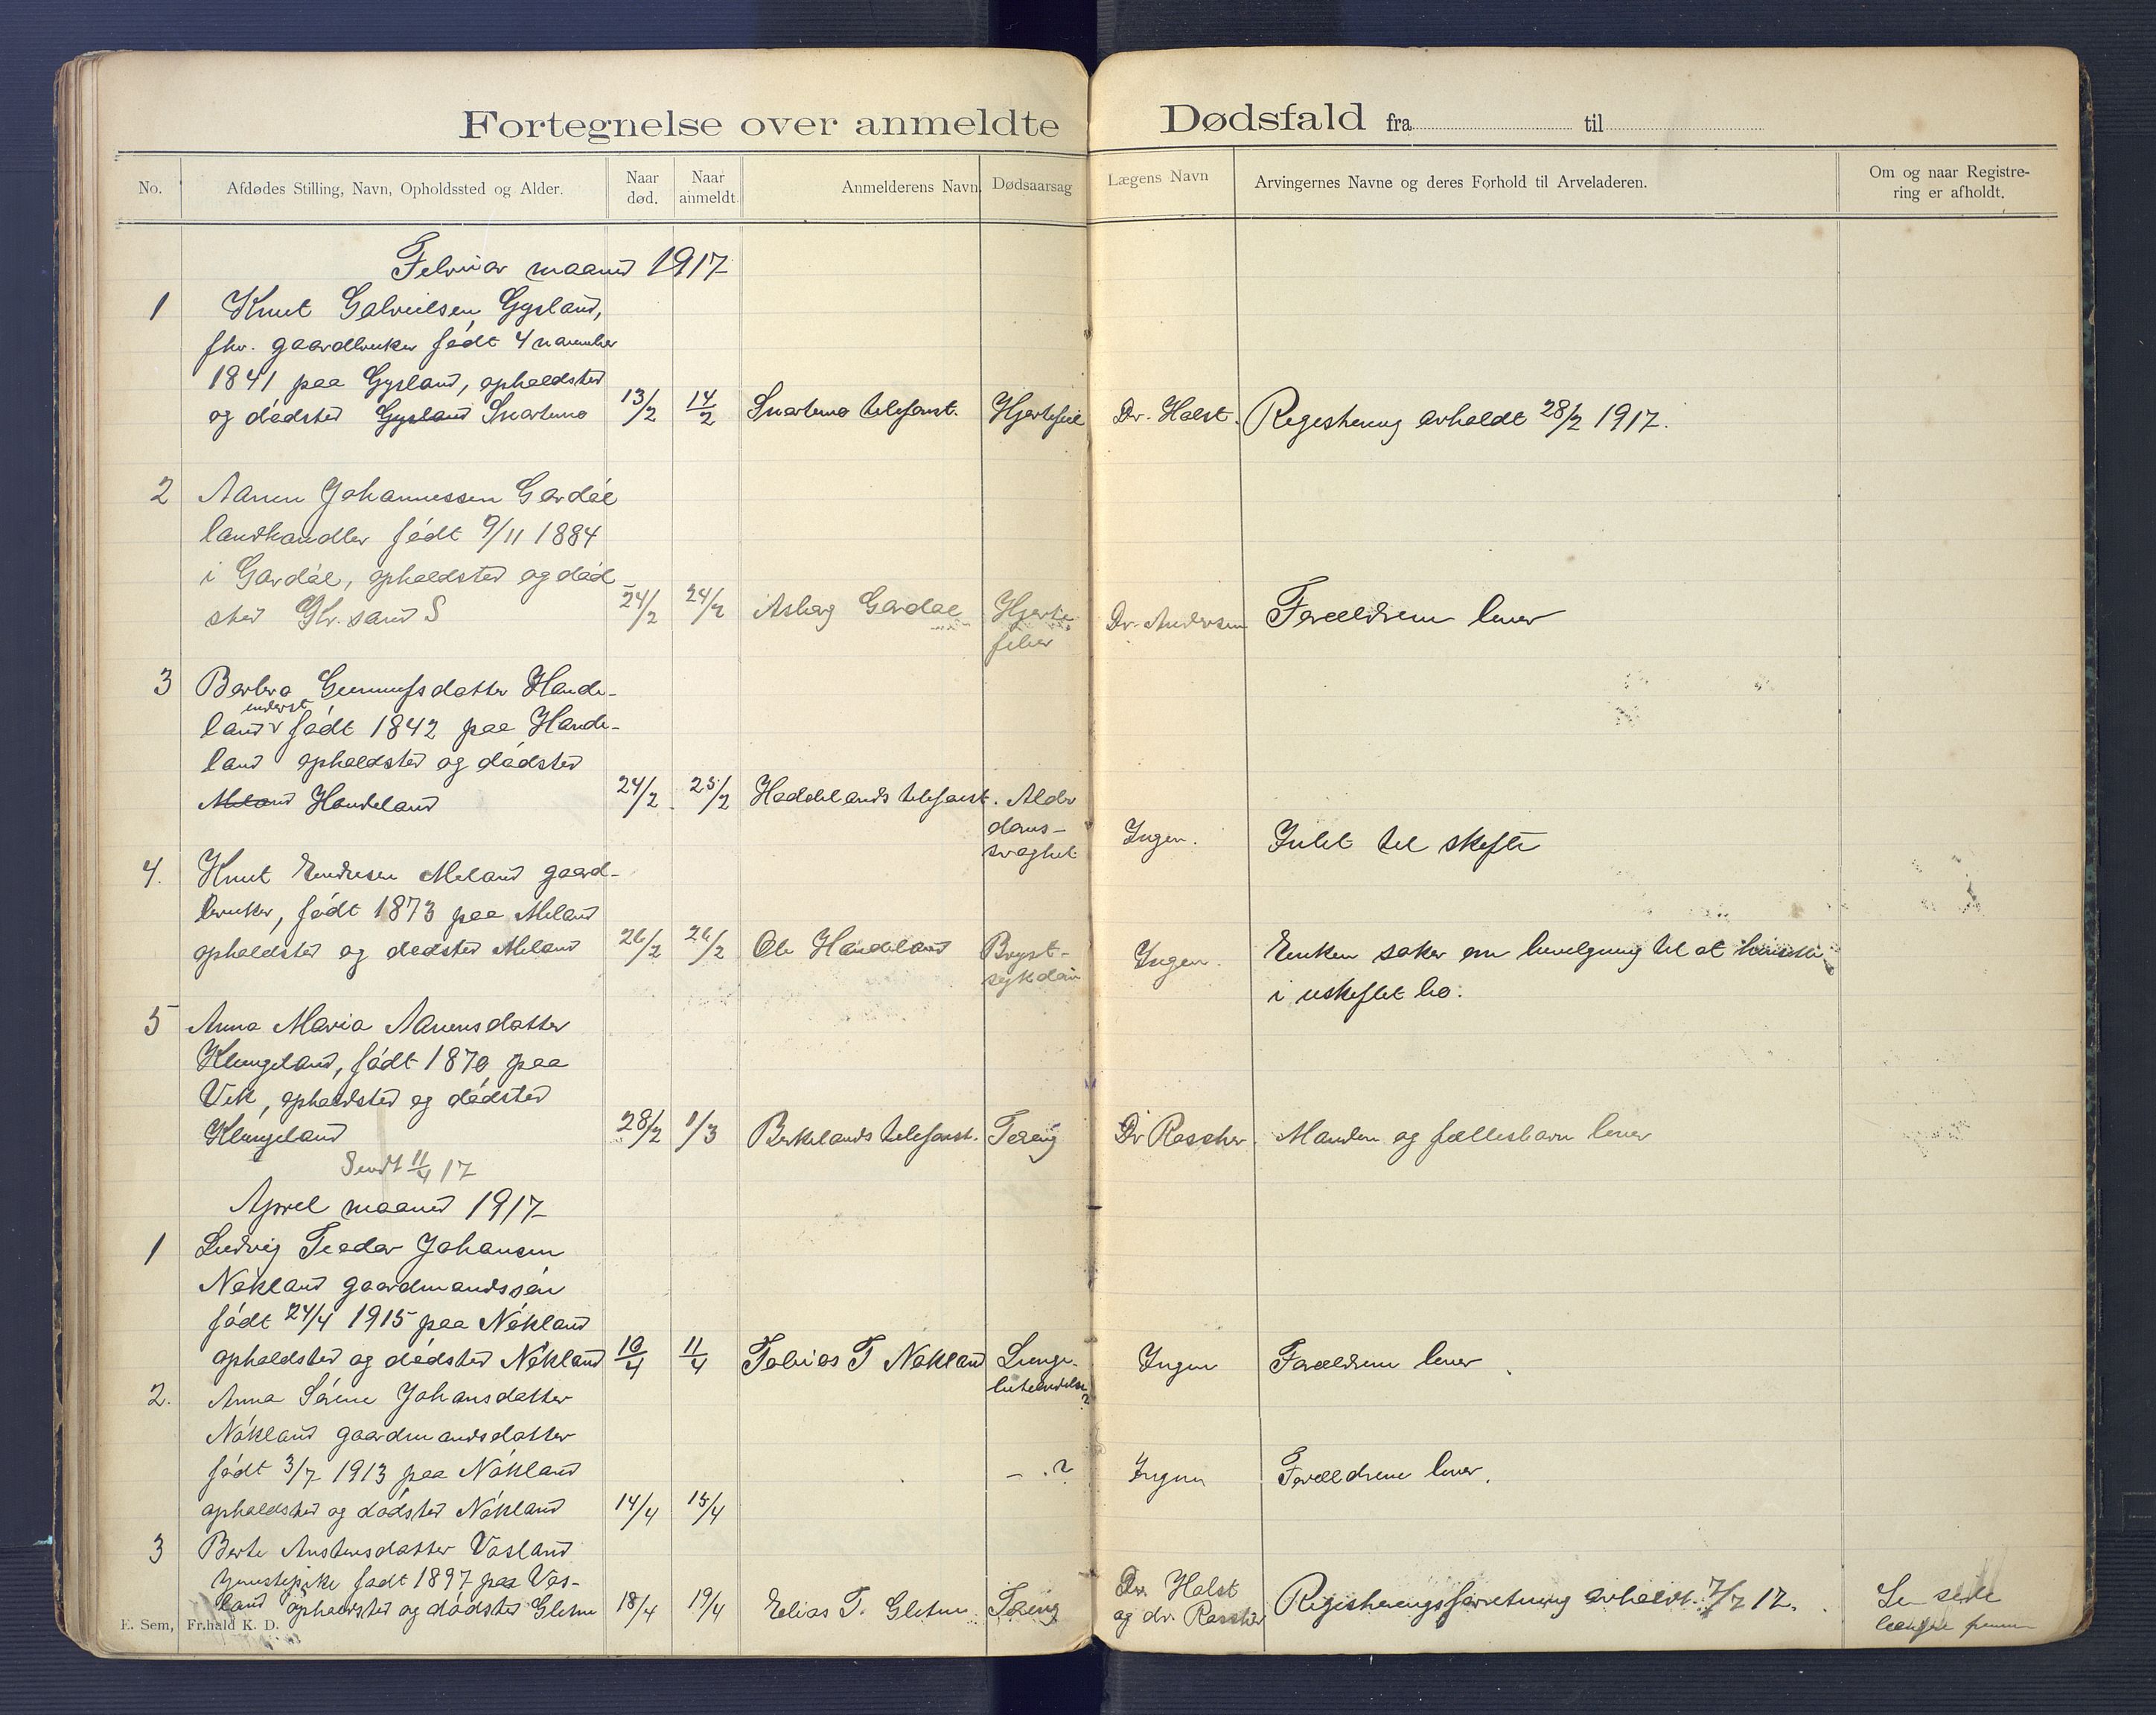 Fortegnelse over anmeldte Dødsfald fra til
No. Afdødes Stilling, Navn, Opholdssted og Alder. Naar død. Naar anmeldt. Anmelderens Navn. Dødsaarsag Lægens Navn Arvingernes Navne og deres Forhold til Arveladeren. Om og naar Registrering er afholdt.
Februar maaned 1917
1 Knut Gabrielsen Gysland,
fhv. gaardbruker født 4 november
1841 paa Gysland, opholdsted
og dødsted Gysland Snartemo 13/2 14/2 Snartemo telefonst. Hjertefeil Dr. Holst. Registrering avholdt 28/2 1917.
2 Aanen Johannessen Gardøl
landhandler født 9/11 1884
i Gardøl, opholdsted og død-
sted Kr.sand S 24/2 24/2 Asberg Gardøl Hjerte- Dr. Andersen Forældrene lever
feber
3 Berbra Gunnufsdatter Hande-
enderst
land v født 1842 paa Hande-
land opholdsted og dødsted
Meland Handeland 24/2 25/2 Haddelands telefonst. Alder
doms- Ingen. Intet til skifte
svaghet
4. Knut Endresen Meland gaard-
bruker, født 1873 paa Meland
opholdsted og dødsted Meland 26/2 26/2 Ole Handeland Bryst- Ingen. Enken søker om bevilgning til at
sykdom i uskiftet bo.
5 Anna Maria Aanensdatter
Klungeland, født 1870 paa
Vik, opholdsted og dødsted
Klungeland 28/2 1/3 Birkelands telefonst. Tæring Dr Rascher Manden og fællesbarn lever
Sendt 11/4 17
April maaned 1917
1 Ludvig Teodor Johansen
Nøkland gaardmandssøn
født 24/4 1915 paa Nøkland
opholdsted og dødsted Nøkland 10/4 11/4 Tobias T Nøkland Lunge- Ingen Forældrene lever
betendelse
?
2. Anna Sørine Johansdatter
Nøkland gaardmandsdatter
født 3/7 1913 paa Nøkland - . ? Ingen Forældrene lever.
opholdsted og dødsted Nøkland 14/4 15/4
3 Berte Anstensdatter Vasland
tjenestepike født 1897 paa Vas-
land opholdsted og dødsted Gletne 18/4 19/4 Elias T. Gletne Tæring Dr. Holst Registreringsforretning avholdt 7/7 17. Se side
og dr. Rascher længre frem
E. Sem, Fr.hald K. D.